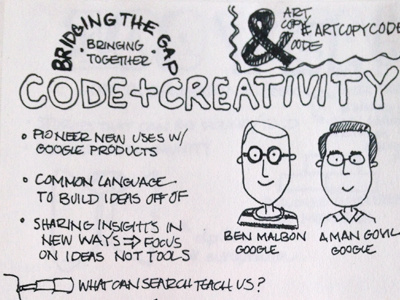 BRIDGING THE GAP
BRINGING
TOGETHER
&
ART
COPY
& CODE
ARTCOPYCODE
CODE+CREATIVITY
• PIONEER NEW USES W/
GOOGLE PRODUCTS
• COMMON LANGUAGE
TO BUILD IDEAS OFF OF
• SHARING INSIGHTS IN
NEW WAYS ⇒ FOCUS
ON IDEAS NOT TOOLS
BEN MALBON
GOOGLE
AMAN GOVIL
GOOGLE
WHAT CAN SEARCH TEACH US?